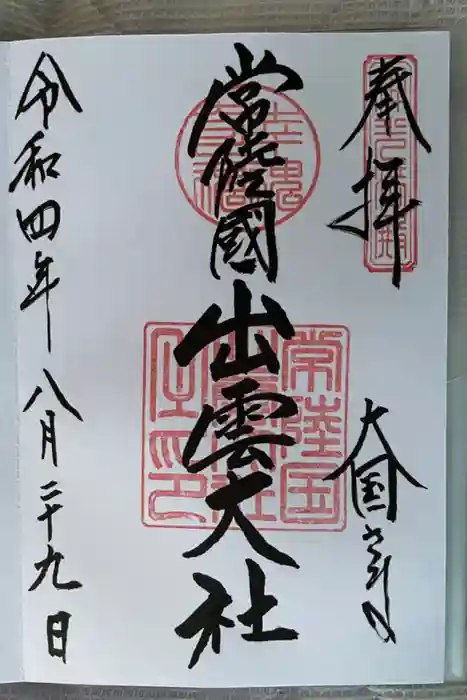 奉拝
大国さま
常陸國
出雲大社
常陸国
令和四年八月二十九日